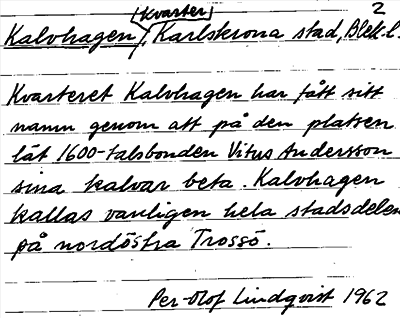 (Kvarter) 2
Kalvhagen, Karlskrona stad, Blek.l.
Kvarteret Kalvhagen har fått sitt
namn genom att på den platsen
lät 1600-talsbonden Vitus Andersson
sina kalvar beta. Kalvhagen
kallas vanligen hela stadsdelen
på nordöstra Trossö.
Per-Olof Lindqvist 1962